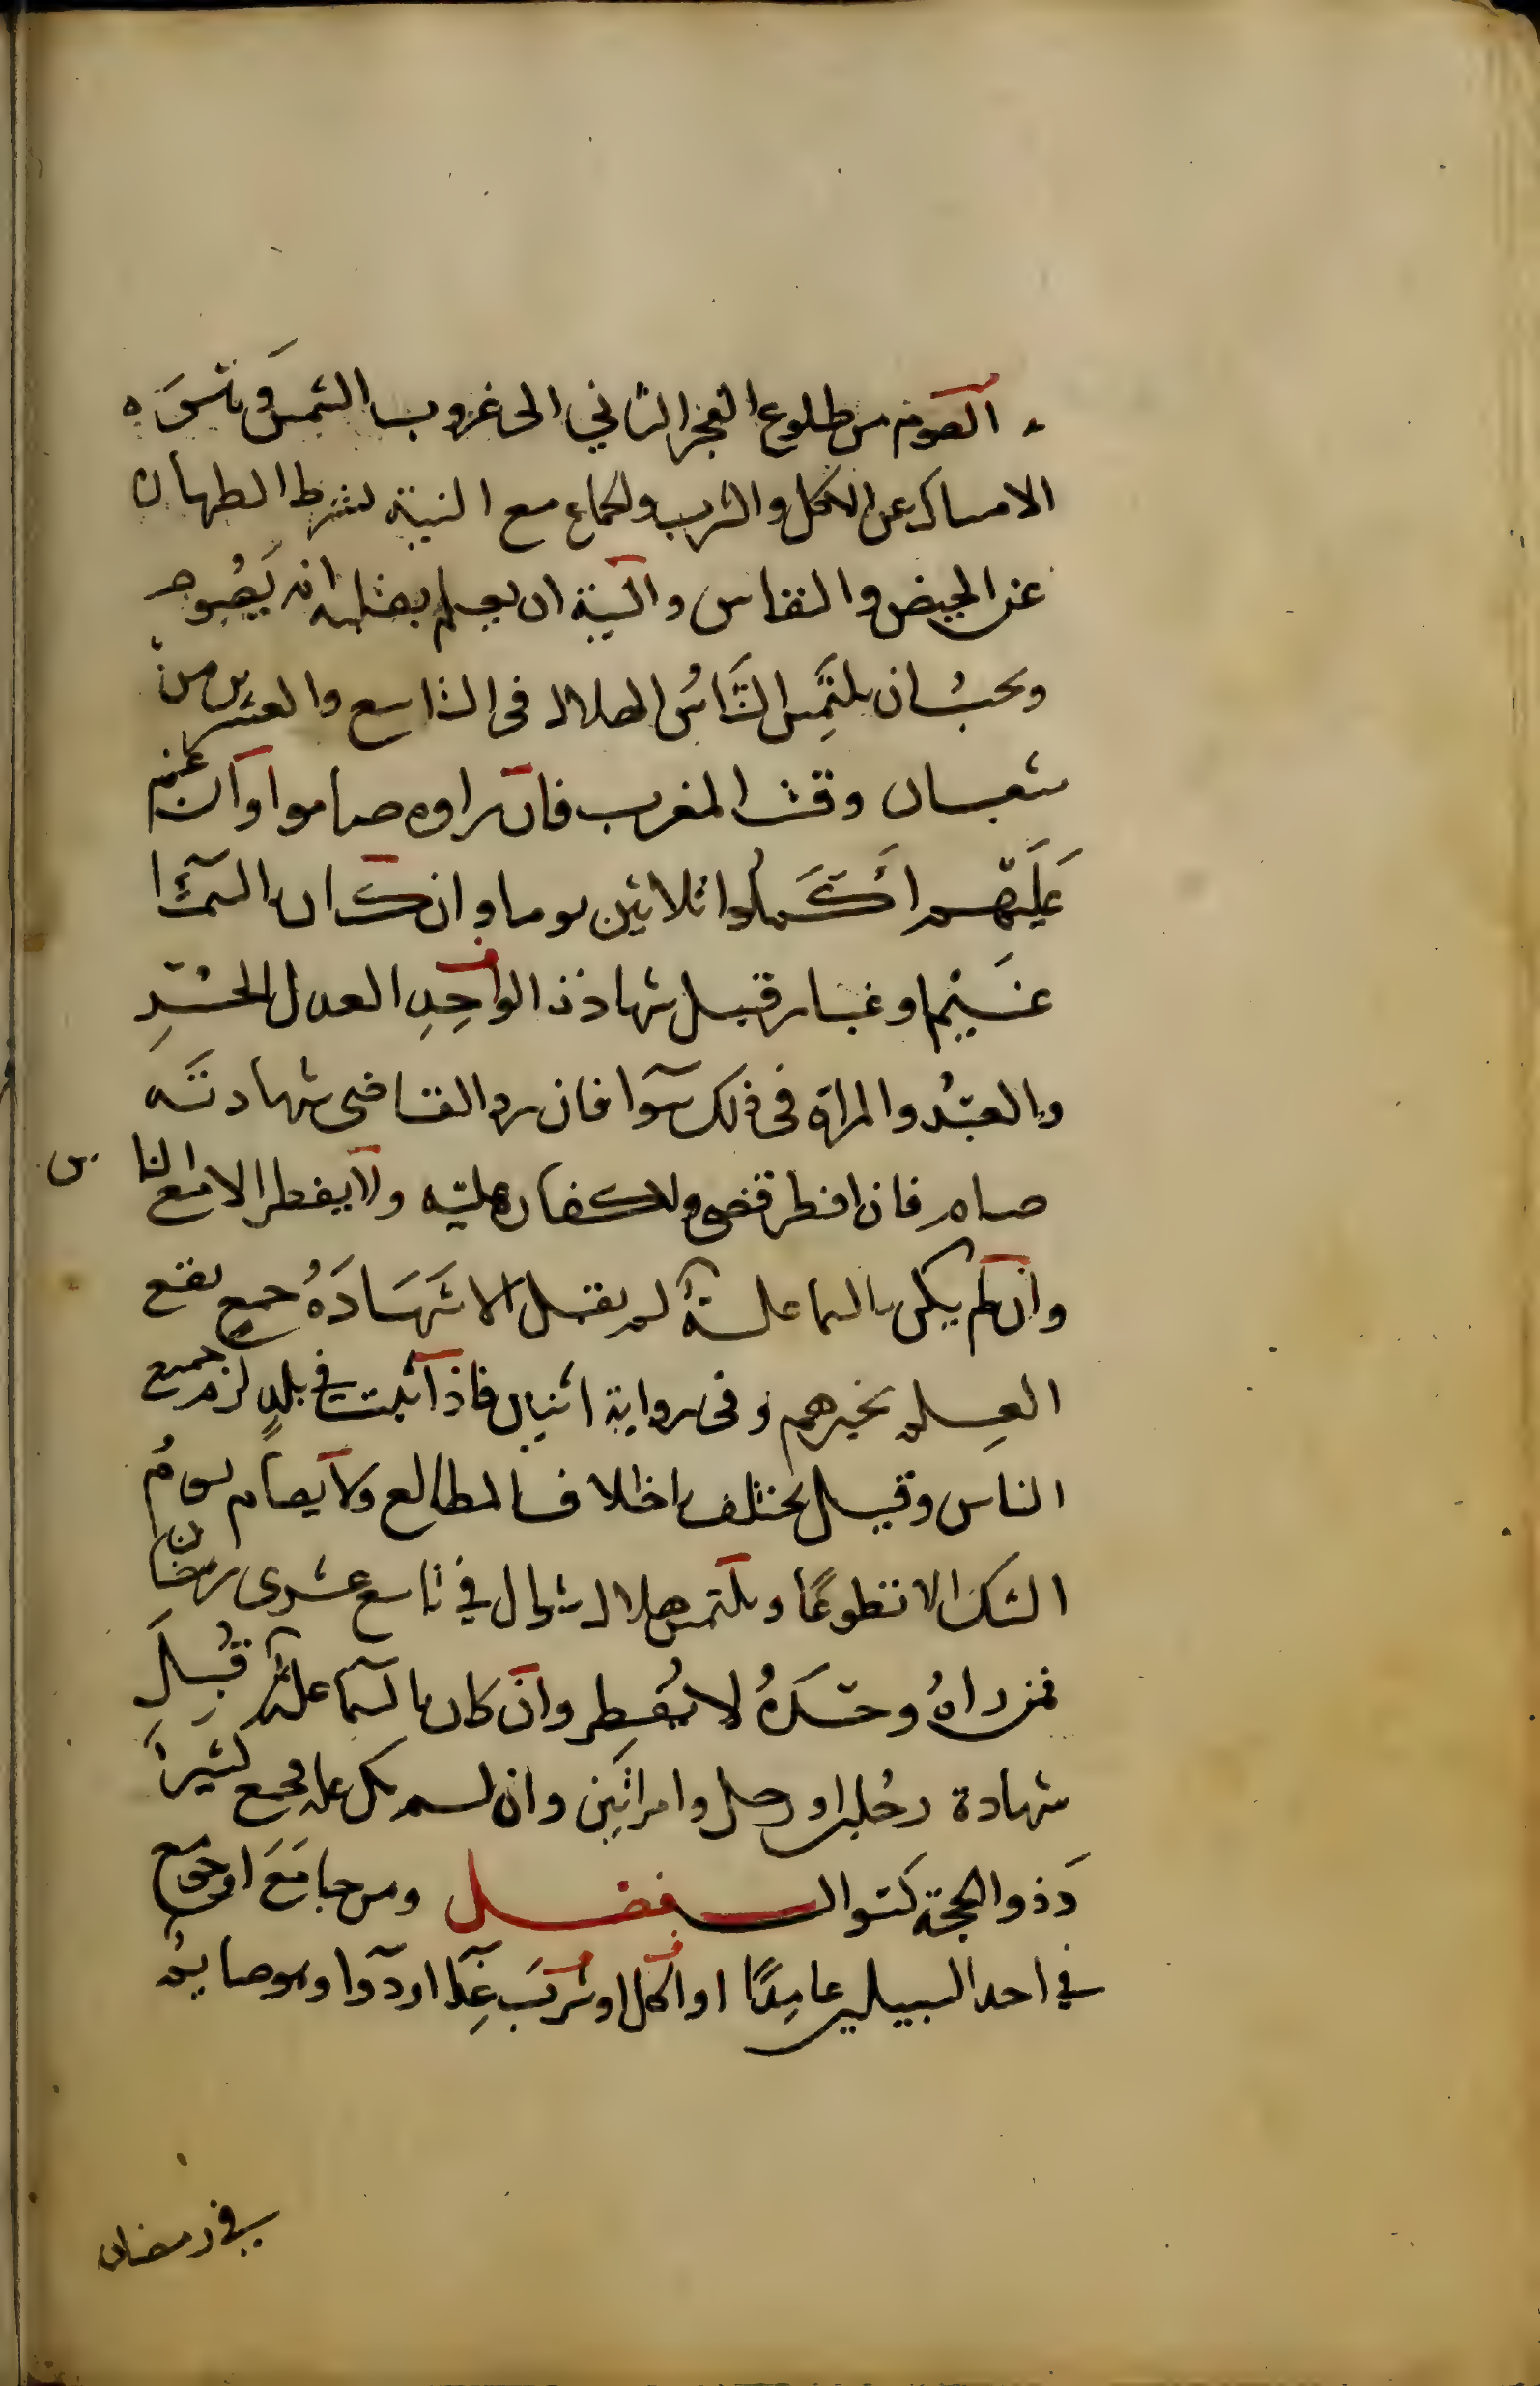 الصوم من طلوع الفجر الثاني الى غروب الشمس وهو
الامساك عن الاكل والشرب والجماع مع النية بشرط الطهارة
عن الحيض والنفاس والنية ان يعلم بقلبه انه يصوم
ويجب ان يلتمس الناس الهلال فى التاسع والعشرين من
شعبان وقت المغرب فان راوه صاموا وان غم
عليهم اكملوا ثلاثين يوما وان كان بالسماء
غيم او غبار قبل شهادة الواحد العدل الحر
والعبد والمراة فى ذلك سوا فان رد القاضى شهادته
صام فان افطر قضى ولا كفارة عليه ولا يفطر الا مع الناس
وان لم يكن بالسما علة لم يقبل الا شهادة جمع يقع
العلم بخبرهم وفى رواية اثنان فاذا ثبت في بلد لزم جميع
الناس وقيل يختلف باختلاف المطالع ولا يصام يوم
الشك الا تطوعا ويلتمس هلال شوال في تاسع عشرى رمضان
فمن راه وحده لا يفطر وان كان بالسما علة قبل
شهادة رجلين او رجل وامراتين وان لم يكن علة فجمع كثير
وذو الحجة كشوال فصل ومن جامع او جومع
في احد السبيلين عامدا او اكل او شرب غذا او دوا وهو صايم
في رمضان